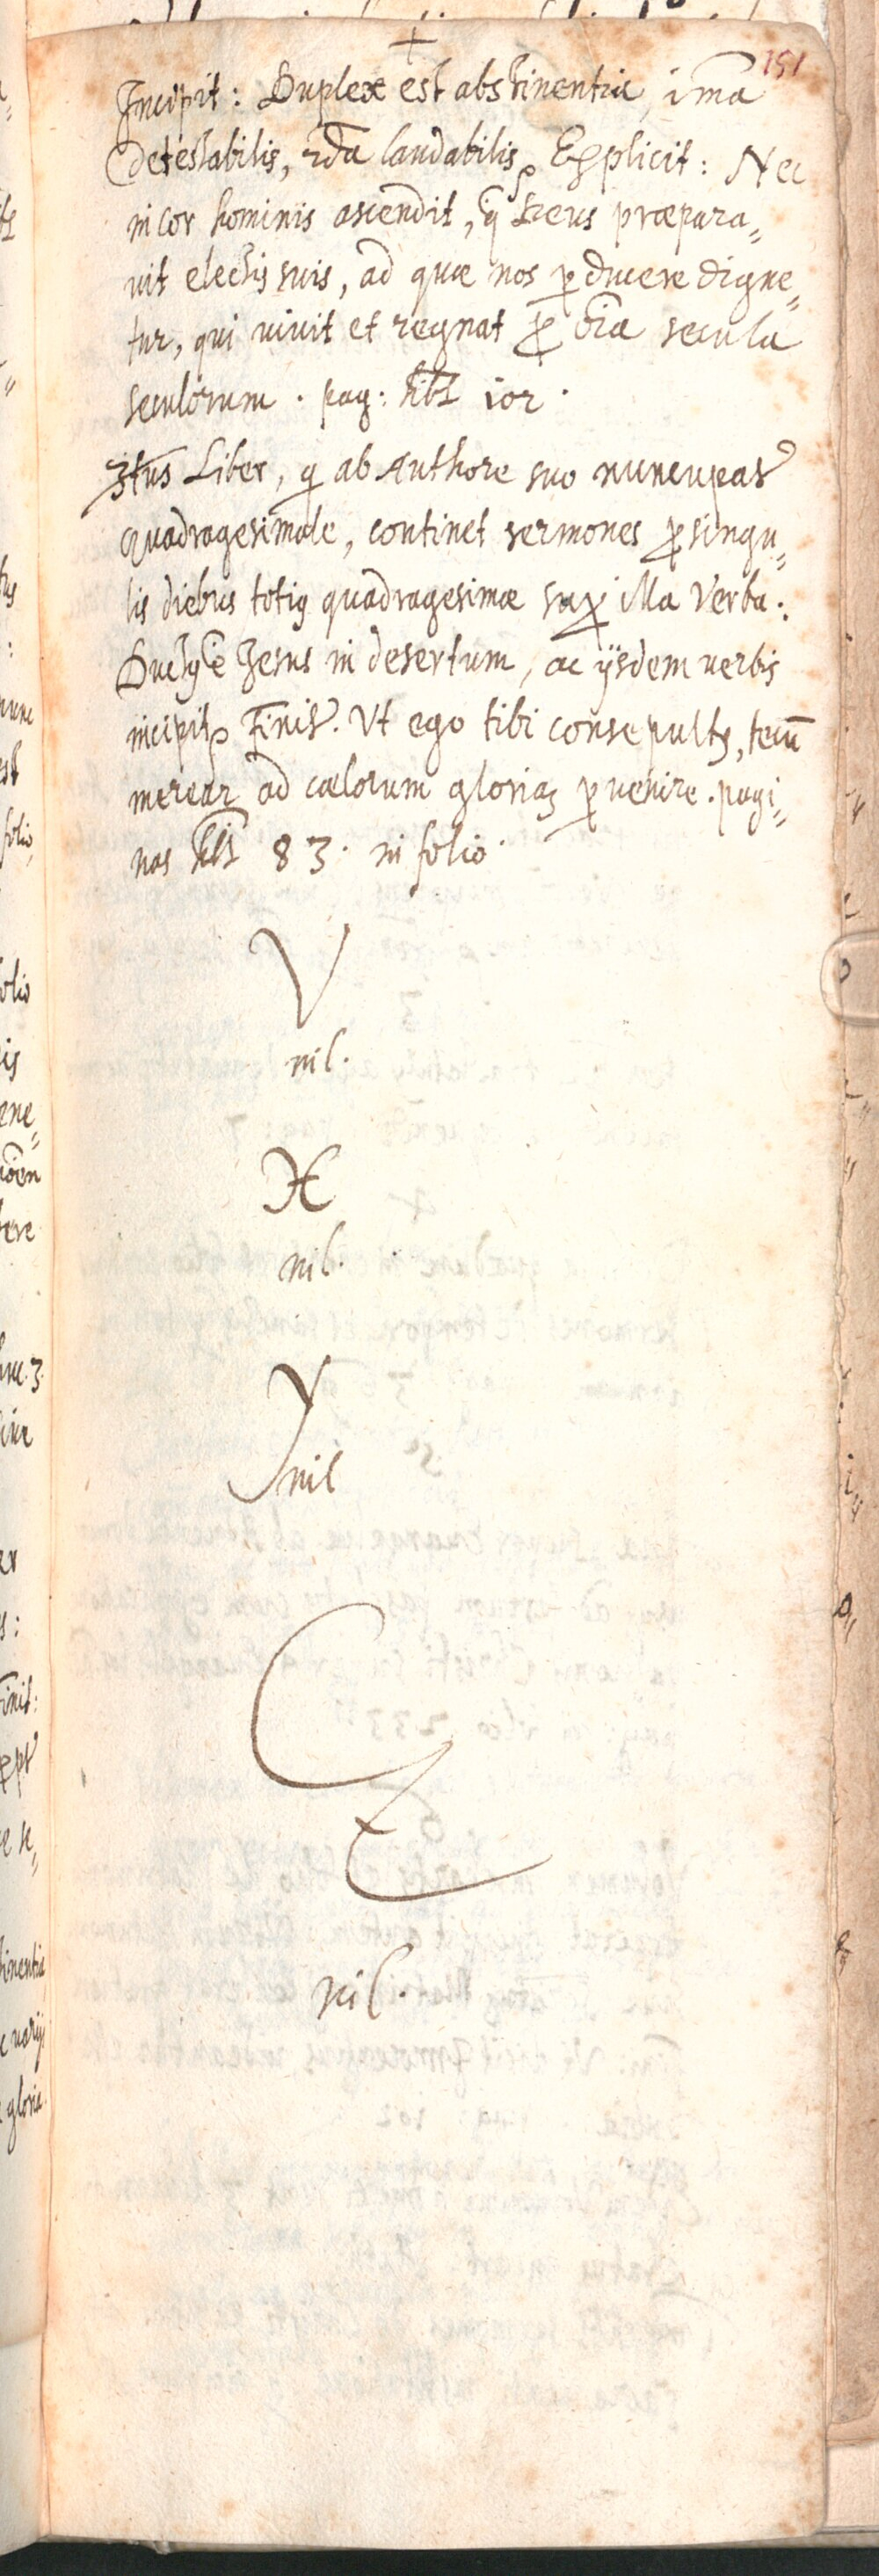 +
151
Incipit: Duplex est abstinentia, ima
detestabilis, 2da laudabilis, Explicit: Nec
in cor hominis ascendit, q̃ Deus præpara„
vit electis suis, ad quæ nos ꝑducere digne„
tur, qui vivit et regnat ꝑ oĩa secula
seculorum. pag: hẽt 102.
3tius Liber, q ab Authore suo nuncupat᷑
quadragesimale, continet sermones ꝓ singu„
lis diebus totiꝰ quadragesimæ suꝑ illa Verba:
Ductꝰ ẽ Jesus in desertum, ac ijsdem verbis
incipit, Finit᷑. Vt ego tibi consepultꝰ, tecũ
merear ad cælorum gloriaꝫ ꝑvenire. pagi„
nas hẽt 83. in folio.
V
nil.
X
nil.
Y
nil
Z
nil.